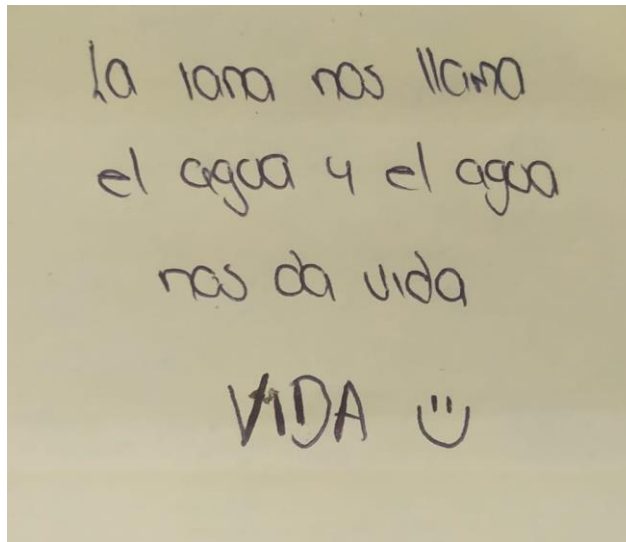 La rana nos llama
el agua y el agua
nos da vida
VIDA